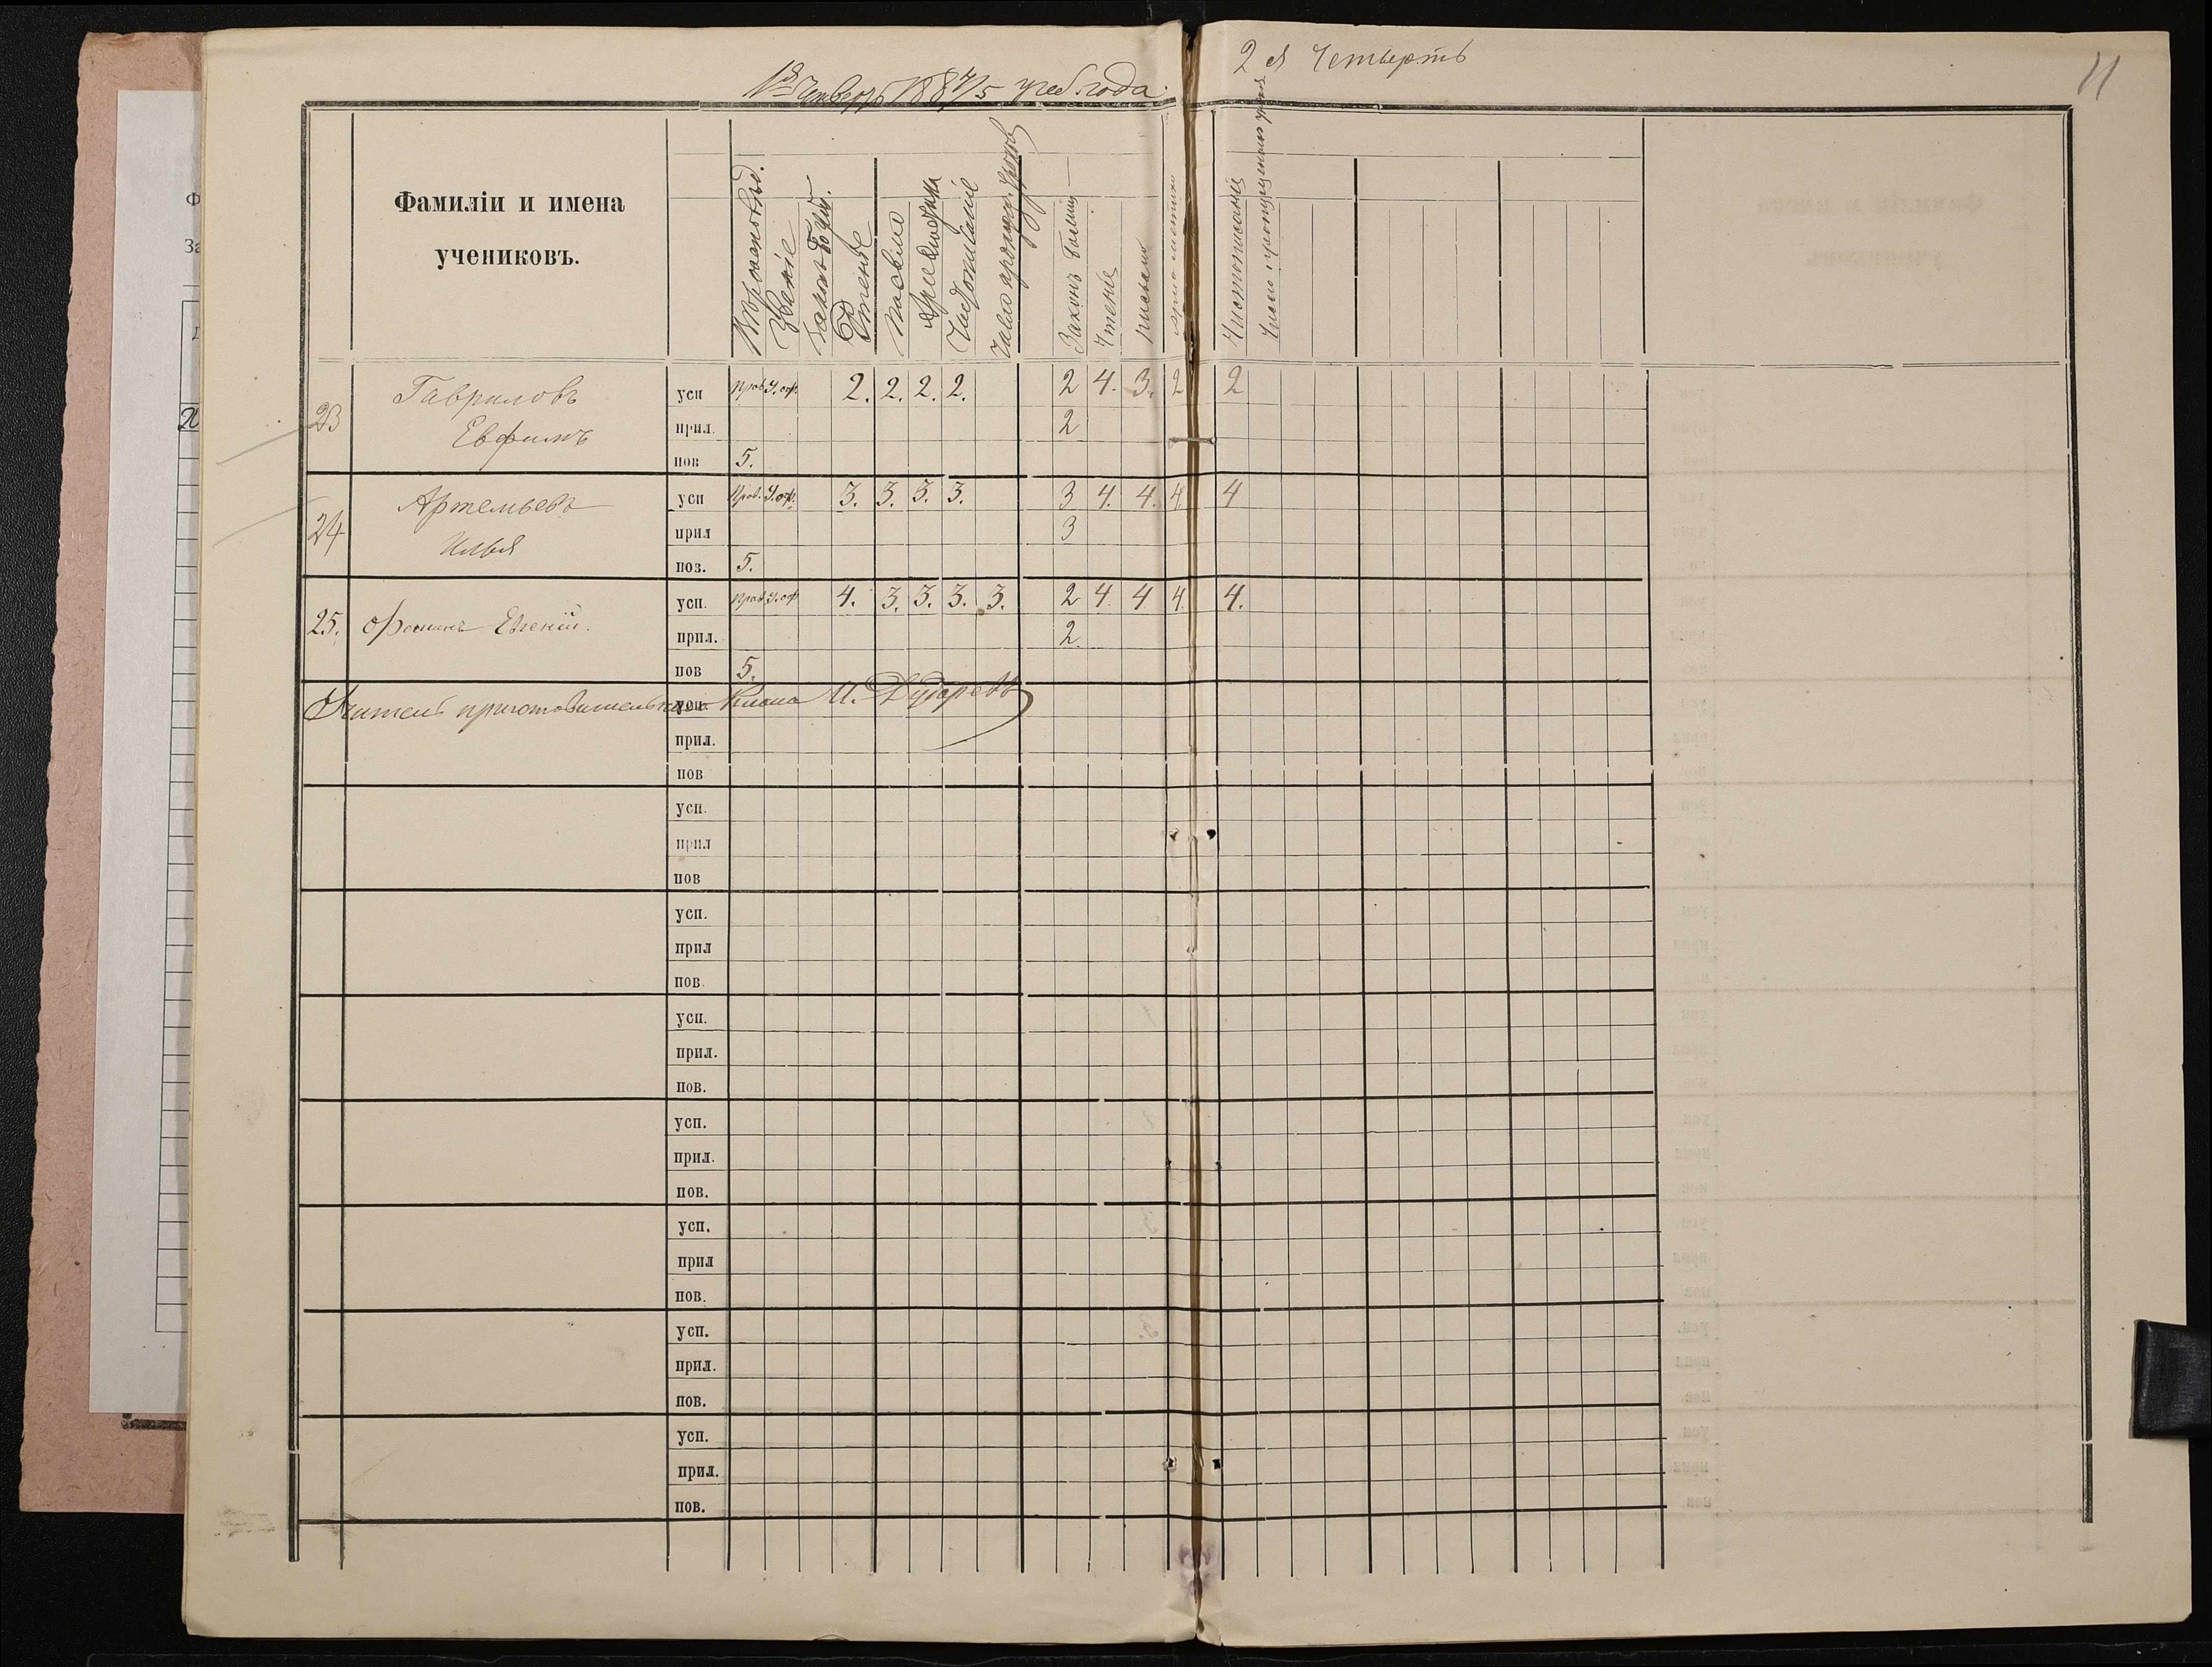 1я Четверть 1884/5 учеб. года.
2 я Четверть
11
Фамиліи и имена
учениковъ.
Вѣроисповѣд.
Званіе
Законъ Божій
Чтеніе
Письмо
Ариѳметика
Чистописаніе
Число пропущ. уроковъ
Законъ Божій
Чтеніе
письмо
ариѳметика
Чистописаніе
Число пропущенныхъ уроков
23
Гавриловъ
Евфимъ
усп Прав. У. оф. 2. 2. 2. 2. 2 4. 3. 2 2
прил. 2
пов 5.
24
Артемьевъ
Илья
усп Прав. У. оф. 3. 3. 3. 3. 3 4. 4. 4. 4
прил 3
поз. 5.
25. Фоминъ Евгеній.
усп. Прав. У. оф 4. 3. 3. 3. 3. 2 4. 4 4. 4.
прил. 2.
пов 5.
Учитель приготовительнаго класса И. Дударевъ
усп.
прил.
пов
усп.
прил
пов
усп.
прил
пов.
усп.
прил.
пов.
усп.
прил.
пов.
усп.
прил
пов.
усп.
прил.
пов.
усп.
прил.
пов.